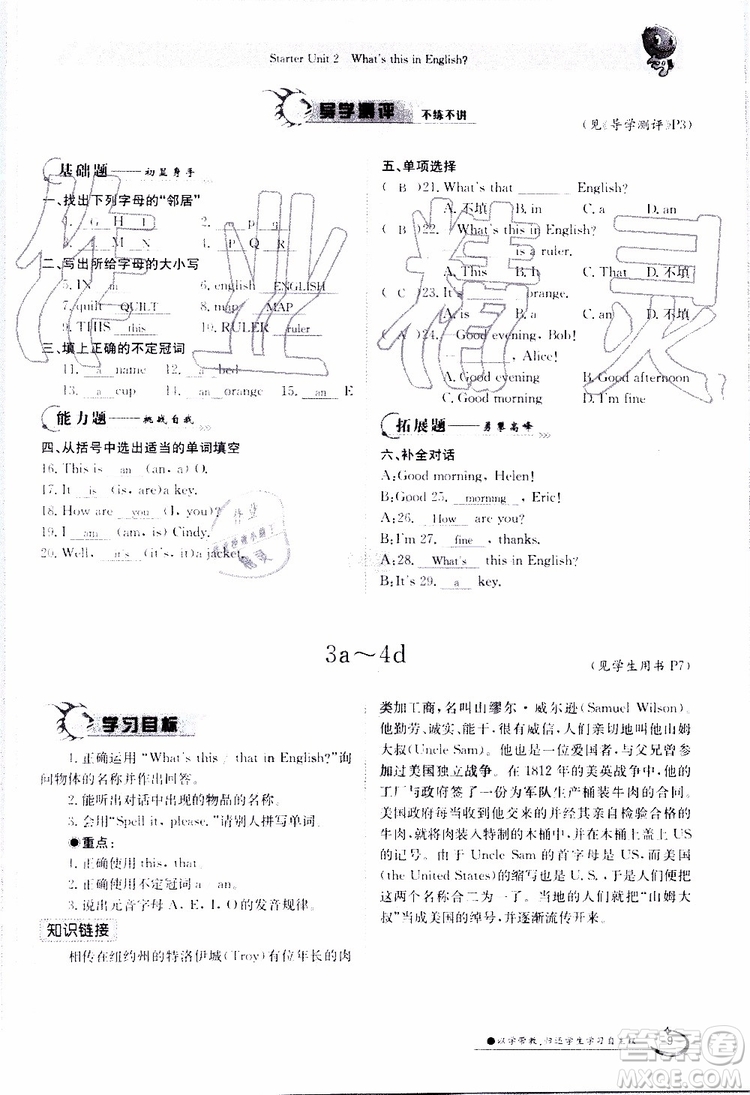 Starter Unit 2 What's this in English?
导学测评 不练不讲
(见《导学测评》P3)
基础题——初显身手
一、找出下列字母的“邻居”
1. G H I 2. p q
3. M N 4. P Q R
二、写出所给字母的大小写
5. IN in 6. english ENGLISH
7. quilt QUILT 8. map MAP
9. THIS this 10. RULER ruler
三、填上正确的不定冠词
11. a name 12. a bed
13. a cup 14. an orange 15. an E
能力题——挑战自我
四、从括号中选出适当的单词填空
16. This is an (an, a) O.
17. It is (is, are) a key.
18. How are you (I, you)?
19. I am (am, is) Cindy.
20. Well, it's (it's, it) a jacket.
五、单项选择
( B )21. What's that ____ English?
A. 不填 B. in C. a D. an
( B )22. What's this in English?
____ is a ruler.
A. This B. It C. That D. 不填
( C )23. It's ____ orange.
A. is B. a C. an D. 不填
( A )24. Good evening, Bob!
____, Alice!
A. Good evening B. Good afternoon
C. Good morning D. I'm fine
拓展题——勇攀高峰
六、补全对话
A: Good morning, Helen!
B: Good 25. morning, Eric!
A: 26. How are you?
B: I'm 27. fine, thanks.
A: 28. What's this in English?
B: It's 29. a key.
3a～4d
(见学生用书 P7)
学习目标
1. 正确运用“What's this / that in English?”询
问物体的名称并作出回答。
2. 能听出对话中出现的物品的名称。
3. 会用“Spell it, please.”请别人拼写单词。
●重点:
1. 正确使用 this, that。
2. 正确使用不定冠词 a an。
3. 说出元音字母 A、E、I、O 的发音规律。
知识链接
相传在纽约州的特洛伊城(Troy)有位年长的肉
类加工商,名叫山缪尔·威尔逊(Samuel Wilson)。
他勤劳、诚实、能干,很有威信,人们亲切地叫他山姆
大叔(Uncle Sam)。他也是一位爱国者,与父兄曾参
加过美国独立战争。在 1812 年的美英战争中,他的
工厂与政府签了一份为军队生产桶装牛肉的合同。
美国政府每当收到他交来的并经其亲自检验合格的
牛肉,就将肉装入特制的木桶中,并在木桶上盖上 US
的记号。由于 Uncle Sam 的首字母是 US,而美国
(the United States)的缩写也是 U.S.,于是人们就把
这两个名称合二为一了。当地的人们就把“山姆大
叔”当成美国的绰号,并逐渐流传开来。
●以学带教,归还学生学习自主权
9
作业精灵
答案卷